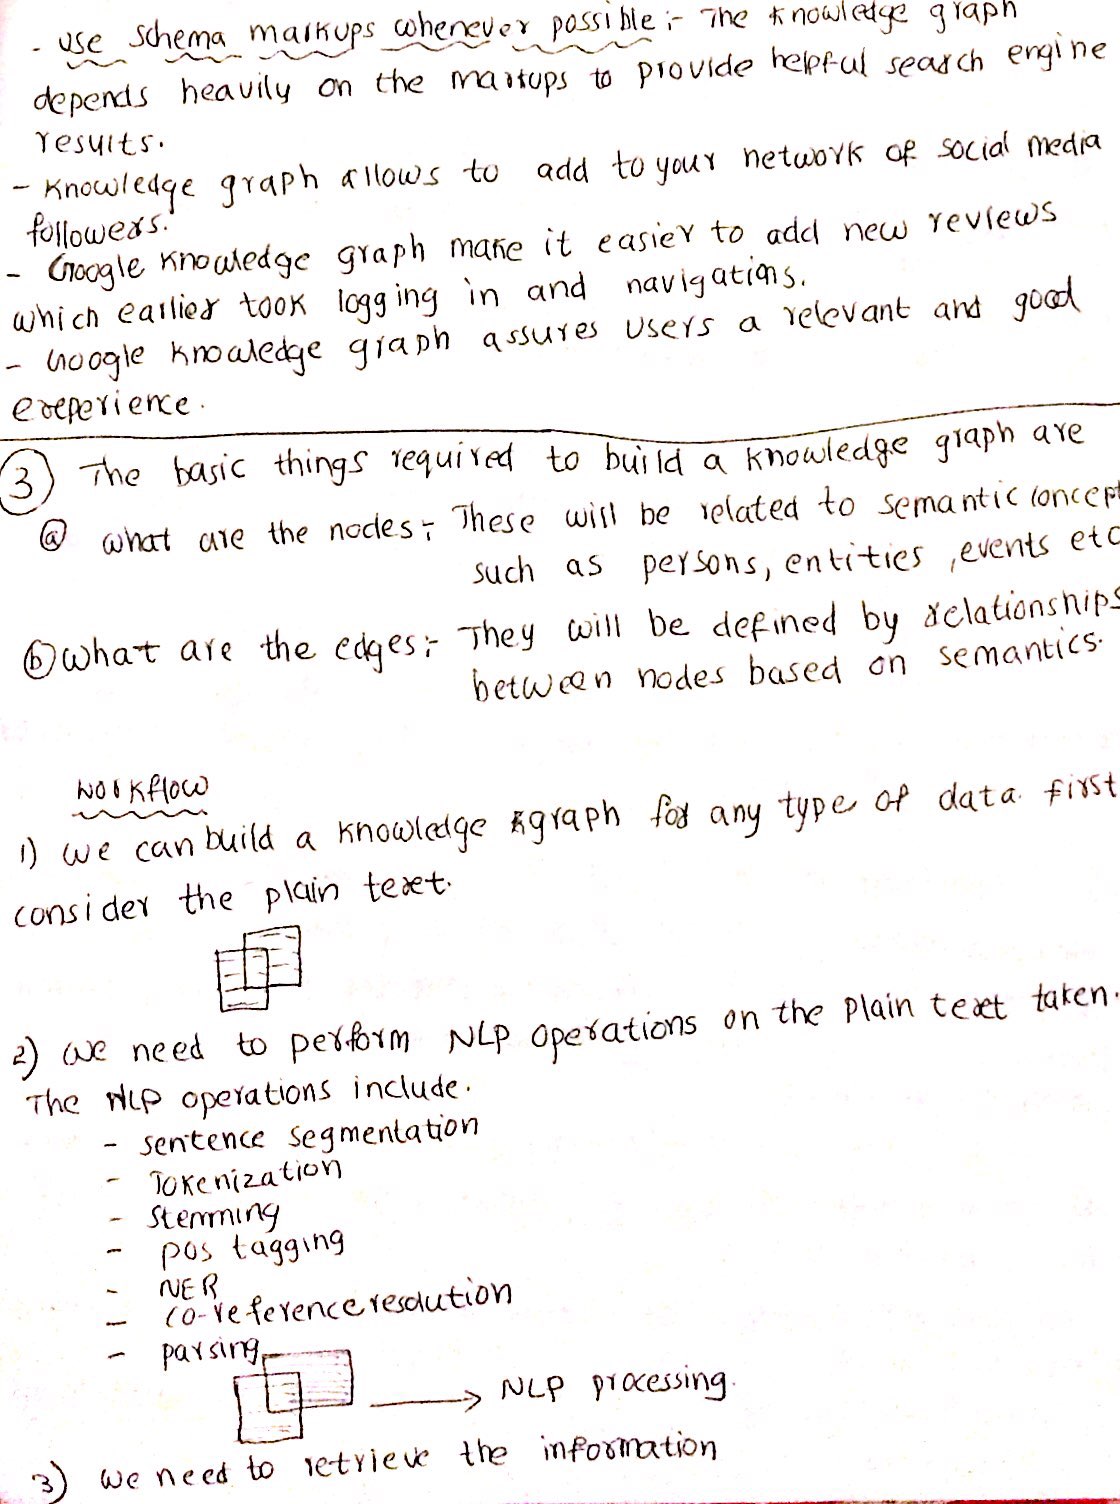 - Use schema markups whenever possible :- The knowledge graph
depends heavily on the markups to provide helpful search engine
results.
- Knowledge graph allows to add to your network of social media
followers.
- Google knowledge graph make it easier to add new reviews
which earlier took logging in and navigations.
- Google knowledge graph assures users a relevant and good
experience.
3 The basic things required to build a knowledge graph are
a what are the nodes :- These will be related to semantic concept
such as persons, entities, events etc
b what are the edges :- They will be defined by relationships
between nodes based on semantics.
Workflow
1) we can build a knowledge graph for any type of data. first
consider the plain text.
2) we need to perform NLP operations on the plain text taken.
The NLP operations include.
- sentence segmentation
- Tokenization
- Stemming
- pos tagging
- NER
- co-reference resolution
- parsing
→ NLP processing.
3) we need to retrieve the information